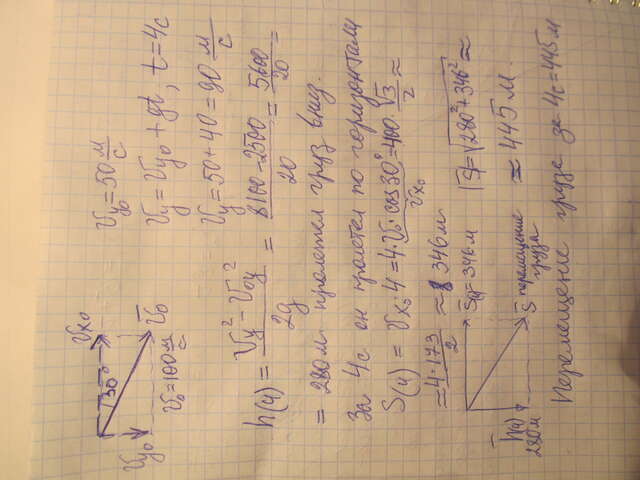 Vx₀
30°
V̄₀
V₀=100 м/с
Vy₀
Vy₀=50 м/с
Vy = Vy₀ + gt, t=4c
Vy=50+40=90 м/с
h(4) = (Vy² - V₀y²)/2g = (8100-2500)/20 = 5600/20 =
= 280м пролетел груз вниз.
За 4с он пролетел по горизонтали
S(4) = Vx₀·4 = 4·V₀·cos30° = 400·√3/2 ≈
Vx₀
≈ 4·173/2 ≈ 346м
S(4)=346м
|S̄|=√(280²+346²) ≈
≈ 445м.
S̄ перемещение
груза
h̄(4)
280м
Перемещение груза за 4с=445м